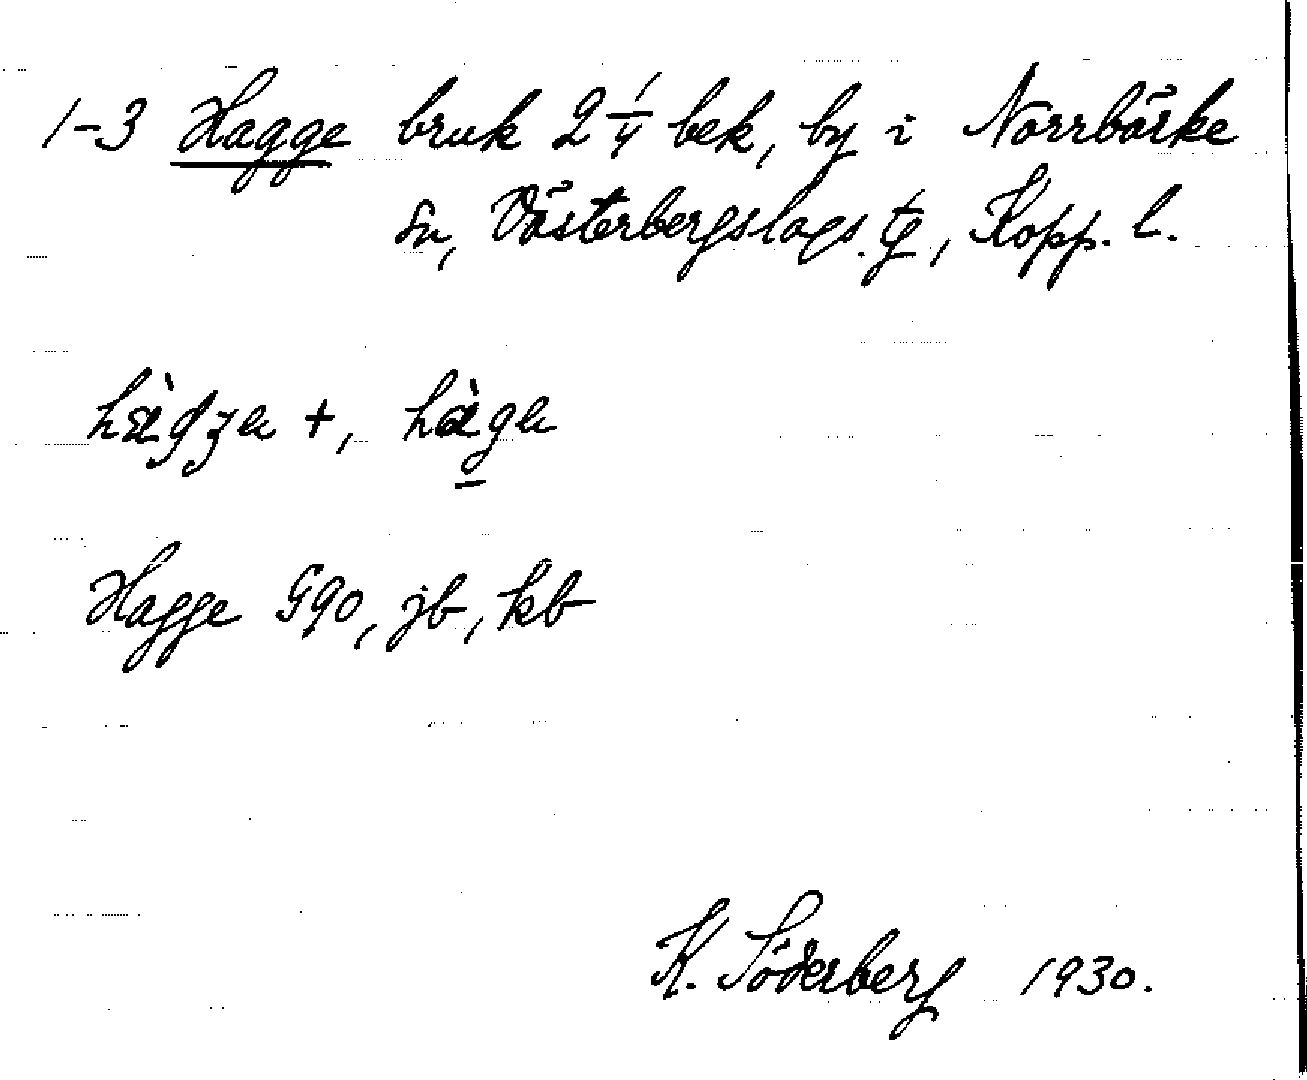 1-3 Hagge bruk 2 1/4 bek, by i Norrbärke
sn, Västerbergslags. tg, Kopp. l.
Hagge G90, jb, kb
K. Söderberg 1930.